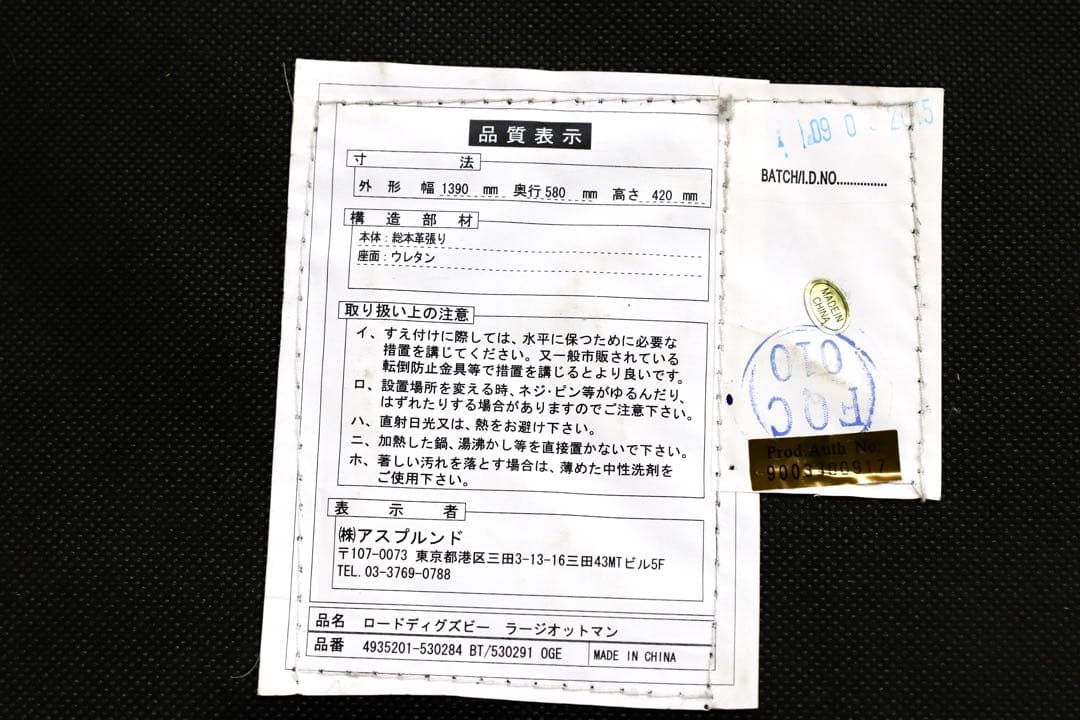 品質表示
寸法
外形 幅 1390 mm 奥行 580 mm 高さ 420 mm
構造部材
本体:総本革張り
座面:ウレタン
取り扱い上の注意
イ、すえ付けに際しては、水平に保つために必要な
措置を講じてください。又一般市販されている
転倒防止金具等で措置を講じるとより良いです。
ロ、設置場所を変える時、ネジ・ピン等がゆるんだり、
はずれたりする場合がありますのでご注意下さい。
ハ、直射日光又は、熱をお避け下さい。
ニ、加熱した鍋、湯沸かし等を直接置かないで下さい。
ホ、著しい汚れを落とす場合は、薄めた中性洗剤を
ご使用下さい。
表示者
㈱アスプルンド
〒107-0073 東京都港区三田3-13-16三田43MTビル5F
TEL. 03-3769-0788
品名 ロードディグズビー ラージオットマン
品番 4935201-530284 BT/530291 OGE MADE IN CHINA
BATCH/I.D.NO...............
MADE IN
CHINA
010
FQC
Prod.Auth No: